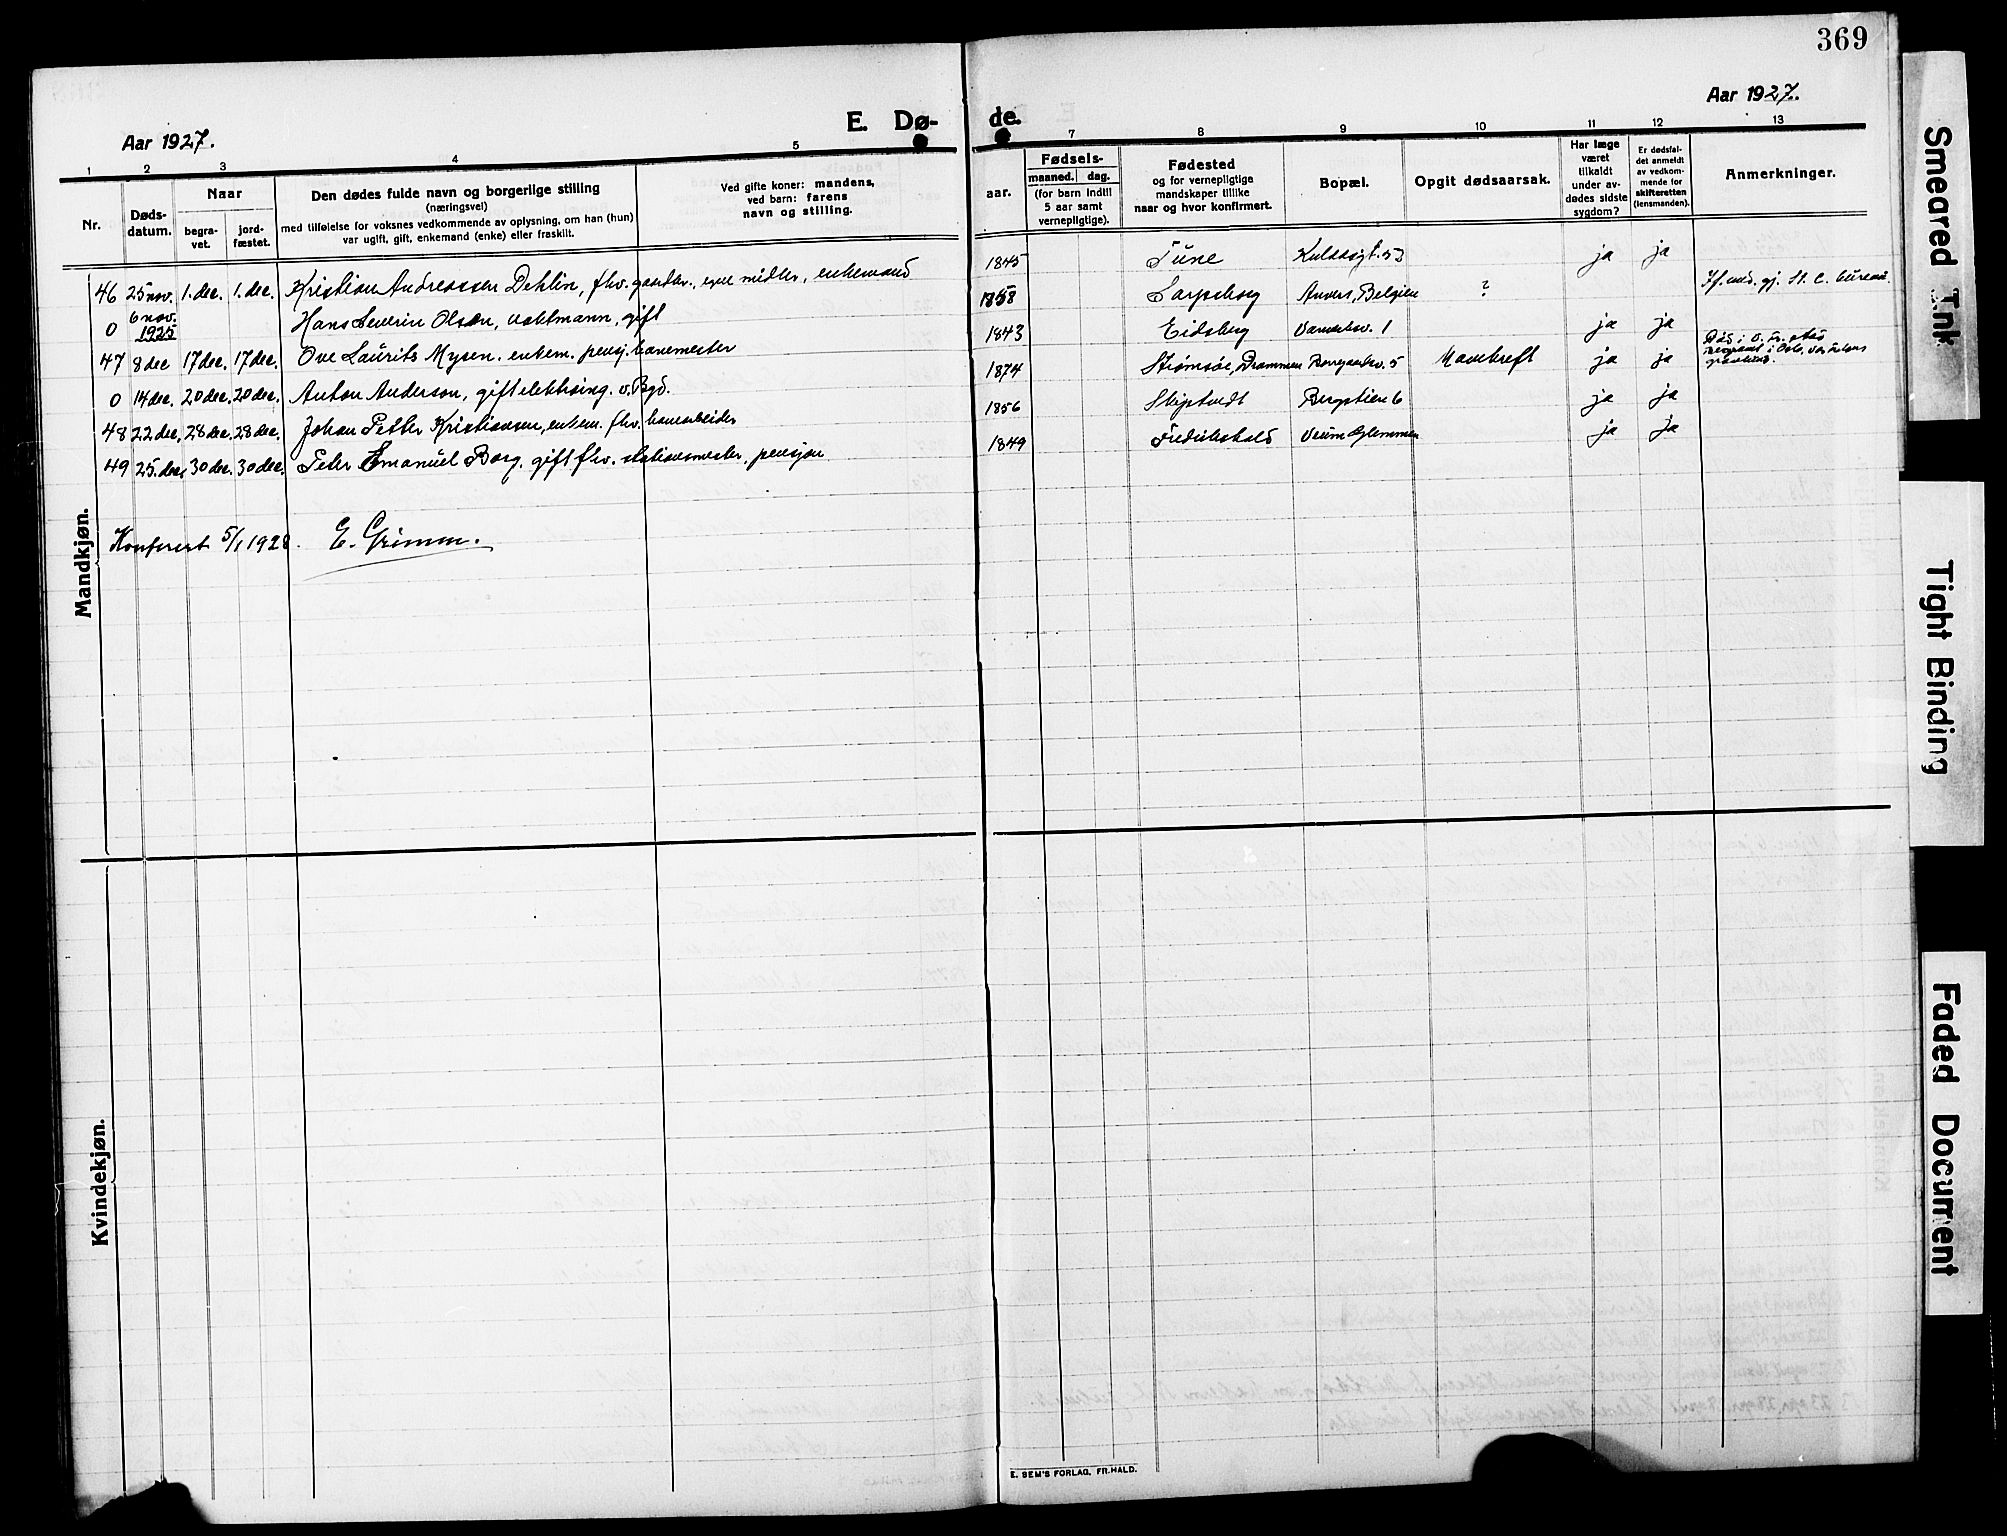 369
Aar 1927.
E. Dø-
de.
Aar 1927.
1 2 3 4 5 7 8 9 10 11 12 13
Nr.
Døds-
datum.
Naar
begra-
vet.
jord-
fæstet.
Den dødes fulde navn og borgerlige stilling
(næringsvei)
med tilføielse for voksnes vedkommende av oplysning, om han (hun)
var ugift, gift, enkemand (enke) eller fraskilt.
Ved gifte koner: mandens,
ved barn: farens
navn og stilling.
aar.
Fødsels-
maaned. dag.
(for barn indtil
5 aar samt
vernepligtige).
Fødested
og for vernepligtige
mandskaper tillike
naar og hvor konfirmert.
Bopæl.
Opgit dødsaarsak.
Har læge
været
tilkaldt
under av-
dødes sidste
sygdom?
Er dødsfal-
det anmeldt
av vedkom-
mende for
skifteretten
(lensmanden).
Anmerkninger.
Mandkjøn.
46 25 nov. 1. dec. 1. dec. Kristian Andreassen Dehlin, fhv. gaardbr., egne midler, enkemand 1845 Tune ja ja
0 6 nov. 1925 Hans Severin Olsen, vaktmann, gift 1858 Sarpsborg Anvers, Belgien ?
47 8 dec 17 dec. 17 dec. Ove Laurits Mysen. enkem. pensj. banemester 1843 Eidsberg 1 ja ja
0 14 dec. 20 dec. 20 dec. Anton Anderson, gift 1874 Strømsøe, Drammen 5 Mavekreft ja ja
48 22 dec. 28 dec. 28 dec. Johan Petter Kristiansen, enkem. fhv. banearbeider 1856 Skiptvedt Bergstien 6 ja ja
49 25. dec. 30 dec. 30 dec. Peter Emanuel Borg. gift fhv. stationsmester, pensjon 1849 Fredrikshald Glemmen ja ja
Konferert 5/1 1928. E. Grimm.
Kvindekjøn.
E. SEM'S FORLAG, FR.HALD.
Smeared Ink
Tight Binding
Faded Document